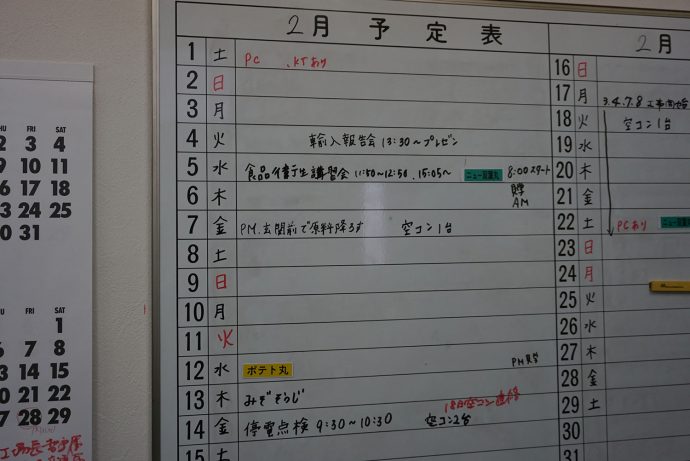 2月 予定表
1 土 PC .KTあり
2 日
3 月
4 火 輸入報告会 13:30～プレゼン
5 水 食品衛生講習会 11:50～12:50 . 15:05～ 8:00スタート
6 木 見学 AM
7 金 PM.玄関前で原料降ろす 空コン1台
8 土
9 日
10 月
11 火
12 水 ポテト丸 PM見学
13 木 みぞそうじ
14 金 停電点検 9:30～10:30 空コン2台
15 土
2月
16 日
17 月 3.4.7.8 工事開始
18 火 空コン1台
19 水
20 木
21 金
22 土 PCあり
23 日
24 月
25 火
26 水
27 木
28 金
29 土
30
31
THU FRI SAT
2 3 4
9 10 11
16 17 18
23 24 25
30 31
FRI SAT
1
6 7 8
13 14 15
20 21 22
27 28 29